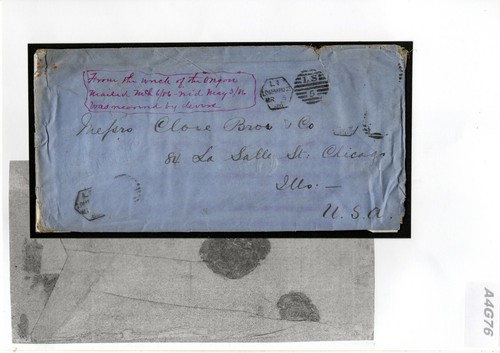 From the wreck of the "Oregon"
Mailed Mch 6/86 rec'd May 3/86
Was recovered by divers
L.S
5
Messrs Close Bros & Co
84 La Salle St. Chicago
Ills. —
U.S.A.
A4G76